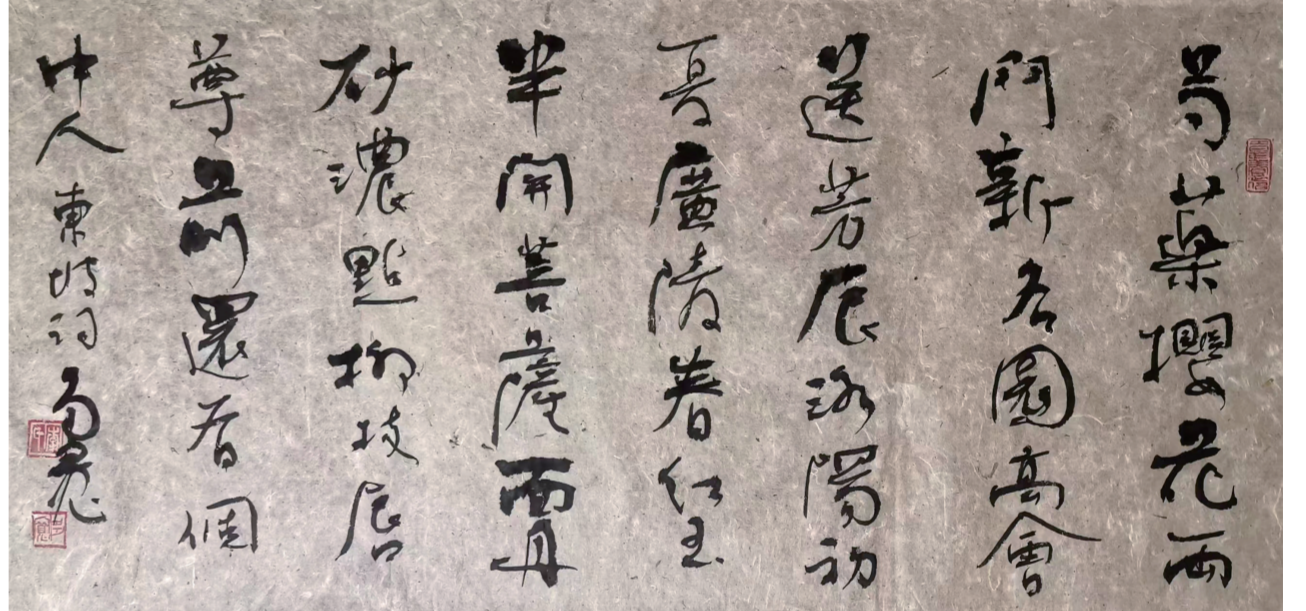 芍藥櫻花兩
鬥新名園高會
送芳辰洛陽初
夏廣陵春紅玉
半開菩薩面丹
砂濃點柳枝唇
尊前還有個
中人 東坡詞